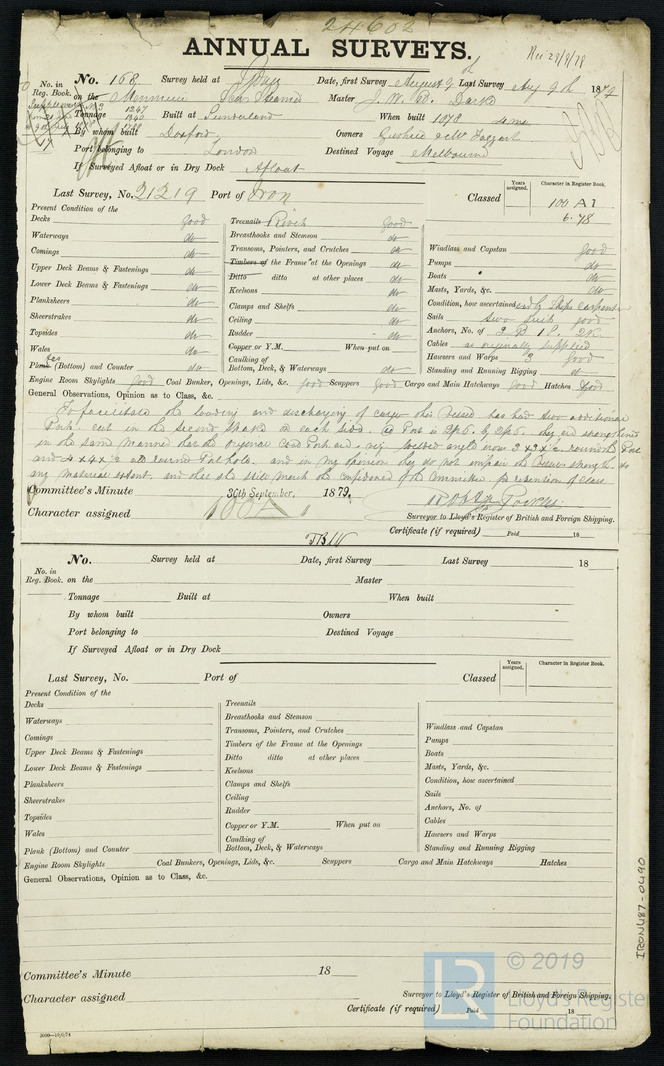 24602
ANNUAL SURVEYS.
No. in Reg. Book.
No. 168 Survey held at Date, first Survey August 9 Last Survey Aug 9th 1879
on the Merimerie Screw Steamer Master J. W. Darke
Tonnage 1247 1340 Built at Sunderland When built 1878
By whom built Doxford Owners
Port belonging to London Destined Voyage Melbourne
If Surveyed Afloat or in Dry Dock Afloat
Last Survey, No. 21219 Port of Iron Classed Years assigned. Character in Register Book.
100 A1
6.78
Present Condition of the
Decks good Treenails Rivets good
Waterways do Breasthooks and Stemson do
Comings do Transoms, Pointers, and Crutches do Windlass and Capstan good
Upper Deck Beams & Fastenings do Timbers of the Frame at the Openings do Pumps do
Lower Deck Beams & Fastenings do Ditto ditto at other places do Boats do
Planksheers do Keelsons do Masts, Yards, &c. do
Sheerstrakes do Clamps and Shelfs do Condition, how ascertained by Ships Carpenter
Topsides do Ceiling do Sails two suits good
Wales do Rudder do Anchors, No. of 3 B 1 S. 2K
Copper or Y.M. When put on Cables as originally supplied
Plank (Bottom) and Counter do Caulking of Bottom, Deck, & Waterways do Hawsers and Warps 3 good
Standing and Running Rigging do
Engine Room Skylights good Coal Bunker, Openings, Lids, &c. good Scuppers good Cargo and Main Hatchways good Hatches good
General Observations, Opinion as to Class, &c.
To facilitate the loading and discharging of cargo this vessel has had two additional
Ports cut in the second strake on each side. Port is 2ft 6. by 2ft 6. they are strengthened
in the same manner as the original Coal Ports are. viz welded angle iron 3 x 3 x round the Port
and 4 x 4 x round Port hole. and in my opinion they do not impair the Vessels strength to
any material extent. and that she still merits the confidence of the Committee for retention of class
Committee's Minute 30th September, 1879.
Character assigned 100A1
Surveyor to Lloyd's Register of British and Foreign Shipping.
Certificate (if required) Paid 18
No. in Reg. Book.
No. Survey held at Date, first Survey Last Survey 18
on the Master
Tonnage Built at When built
By whom built Owners
Port belonging to Destined Voyage
If Surveyed Afloat or in Dry Dock
Last Survey, No. Port of Classed Years assigned. Character in Register Book.
Present Condition of the
Decks Treenails
Waterways Breasthooks and Stemson
Comings Transoms, Pointers, and Crutches Windlass and Capstan
Upper Deck Beams & Fastenings Timbers of the Frame at the Openings Pumps
Lower Deck Beams & Fastenings Ditto ditto at other places Boats
Planksheers Keelsons Masts, Yards, &c.
Sheerstrakes Clamps and Shelfs Condition, how ascertained
Topsides Ceiling Sails
Wales Rudder Anchors, No. of
Copper or Y.M. When put on Cables
Plank (Bottom) and Counter Caulking of Bottom, Deck, & Waterways Hawsers and Warps
Standing and Running Rigging
Engine Room Skylights Coal Bunkers, Openings, Lids, &c. Scuppers Cargo and Main Hatchways Hatches
General Observations, Opinion as to Class, &c.
Committee's Minute 18
Character assigned
Surveyor to Lloyd's Register of British and Foreign Shipping.
Certificate (if required) Paid 18
IRON487-0490
LR
© 2019
Lloyd's Register
Foundation